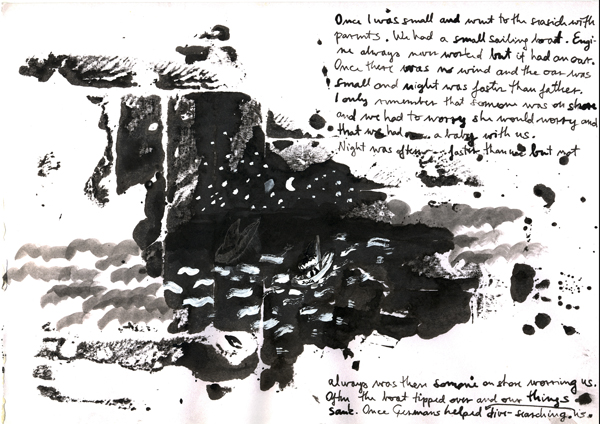 Once I was small and went to the seaside with
parents. We had a small sailing boat. Engi-
ne always never worked but it had an oar.
Once there was no wind and the oar was
small and night was faster than father.
I only remember that someone was on shore
and we had to worry she would worry and
that we had a baby with us.
Night was often faster than we but not
always was there someone on shore worrying us.
Often the boat tipped over and our things
sank. Once Germans helped dive-searching us.